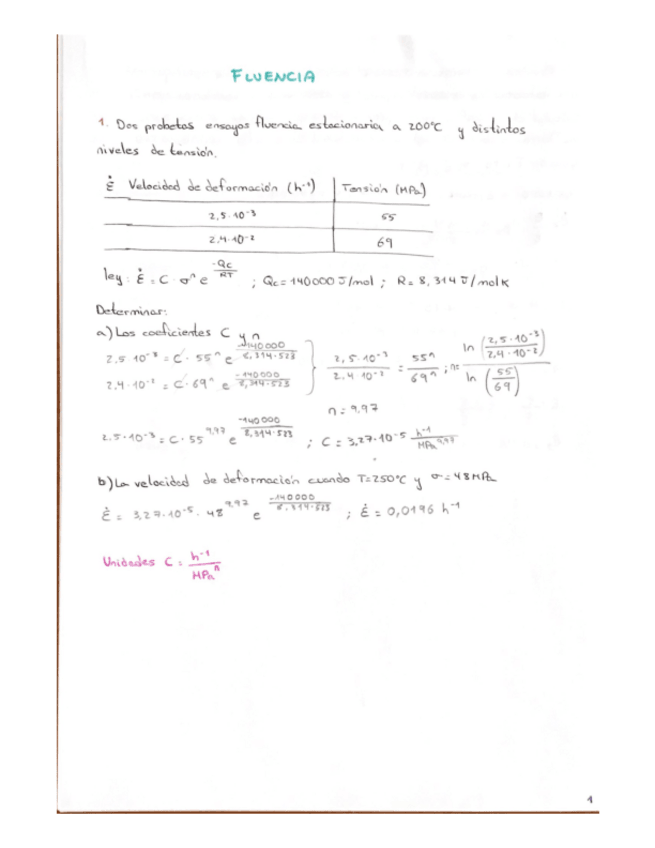 FLUENCIA
1. Dos probetas ensayos fluencia estacionaria a 200ºC y distintos
niveles de tensión.
ε̇ Velocidad de deformación (h⁻¹) | Tensión (MPa)
2,5·10⁻³ | 55
2,4·10⁻² | 69
ley: ε̇ = C · σⁿ e^(-Qc/RT) ; Qc = 140000 J/mol ; R = 8,314 J/mol K
Determinar:
a) Los coeficientes C y n
2,5·10⁻³ = C · 55ⁿ e^(-140000/8,314·523) } (2,5·10⁻³)/(2,4·10⁻²) = 55ⁿ/69ⁿ ; n = ln(2,5·10⁻³/2,4·10⁻²)/ln(55/69)
2,4·10⁻² = C · 69ⁿ e^(-140000/8,314·523)
n = 9,97
2,5·10⁻³ = C · 55^9,97 e^(-140000/8,314·523) ; C = 3,27·10⁻⁵ h⁻¹/MPa^9,97
b) La velocidad de deformación cuando T=250ºC y σ=48MPa
ε̇ = 3,27·10⁻⁵ · 48^9,97 e^(-140000/8,314·523) ; ε̇ = 0,0196 h⁻¹
Unidades C = h⁻¹/MPaⁿ
1